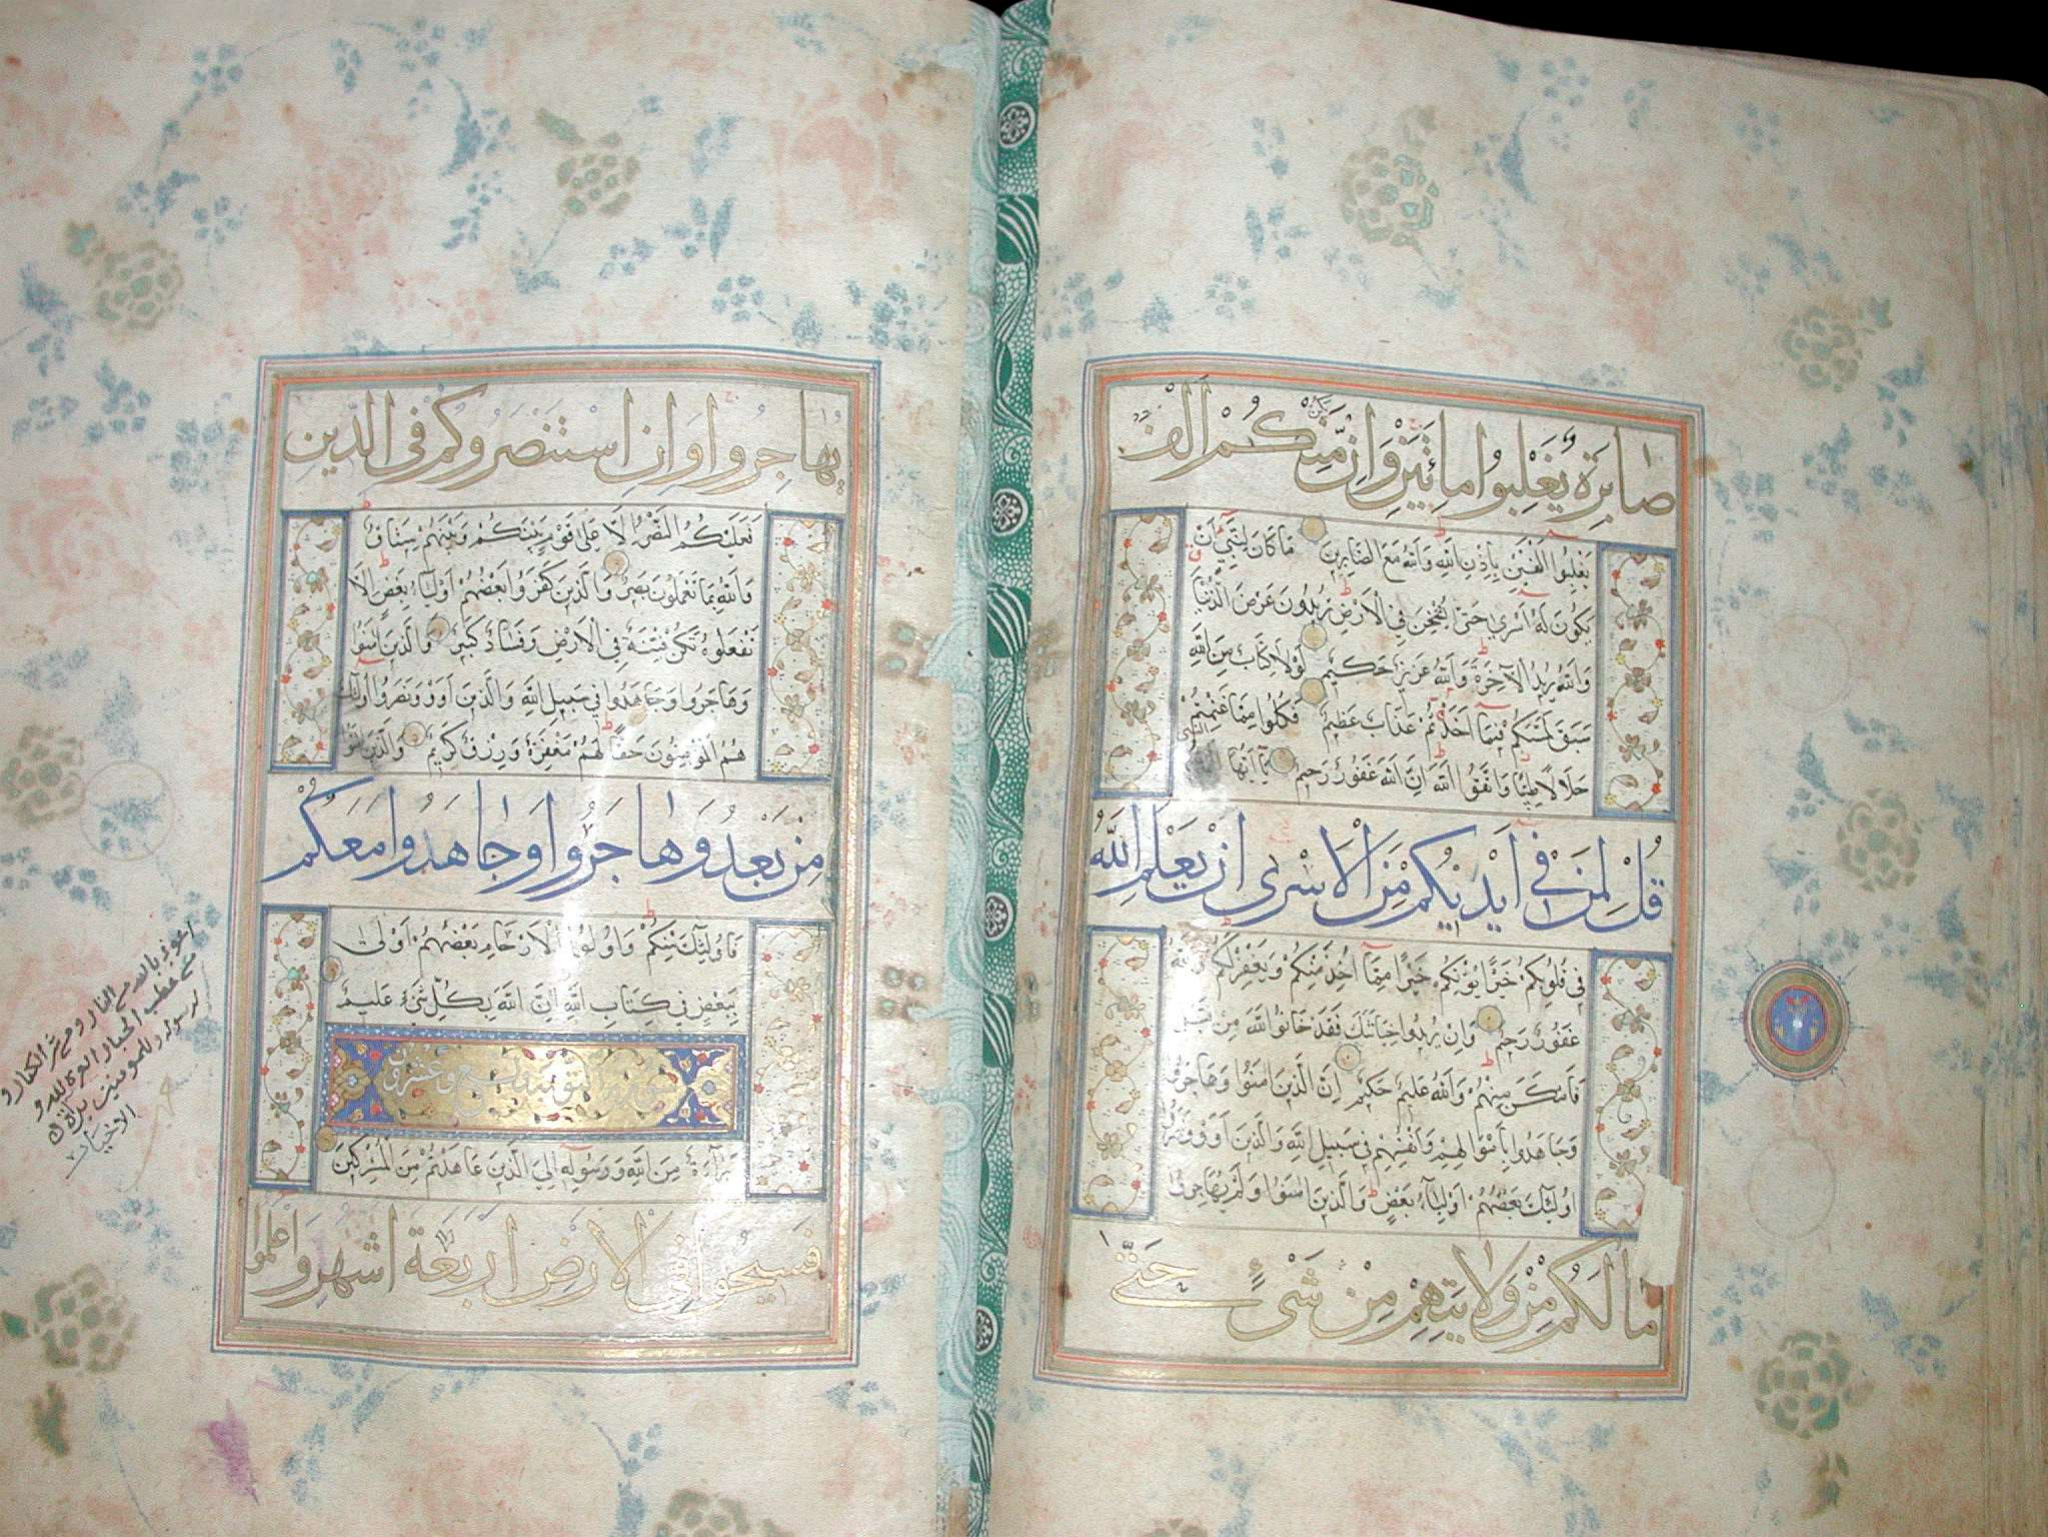 صابرة يغلبوا مائتين وان يكن منكم الف
يغلبوا الفين باذن الله والله مع الصابرين ما كان لنبي ان
يكون له اسرى حتى يثخن في الارض تريدون عرض الدنيا
والله يريد الآخرة والله عزيز حكيم لولا كتاب من الله
سبق لمسكم فيما اخذتم عذاب عظيم فكلوا مما غنمتم
حلالا طيبا واتقوا الله ان الله غفور رحيم يا ايها النبي
قل لمن في ايديكم من الاسرى ان يعلم الله
في قلوبكم خيرا يؤتكم خيرا مما اخذ منكم ويغفر لكم والله
غفور رحيم وان يريدوا خيانتك فقد خانوا الله من قبل
فامكن منهم والله عليم حكيم ان الذين امنوا وهاجروا
وجاهدوا باموالهم وانفسهم في سبيل الله والذين آووا ونصروا
اولئك بعضهم اولياء بعض والذين امنوا ولم يهاجروا
ما لكم من ولايتهم من شيء حتى
يهاجروا وان استنصروكم في الدين
فعليكم النصر الا على قوم بينكم وبينهم ميثاق
والله بما تعملون بصير والذين كفروا بعضهم اولياء بعض الا
تفعلوه تكن فتنة في الارض وفساد كبير والذين امنوا
وهاجروا وجاهدوا في سبيل الله والذين آووا ونصروا اولئك
هم المؤمنون حقا لهم مغفرة ورزق كريم والذين امنوا
من بعد وهاجروا وجاهدوا معكم
فاولئك منكم واولوا الارحام بعضهم اولى
ببعض في كتاب الله ان الله بكل شيء عليم
سورة التوبة مائة وتسع وعشرون
براءة من الله ورسوله الى الذين عاهدتم من المشركين
فسيحوا في الارض اربعة اشهر واعلموا
اعوذ بالله من النار ومن شر الكفار و
من غضب الجبار العزة لله و
لرسوله وللمومنين